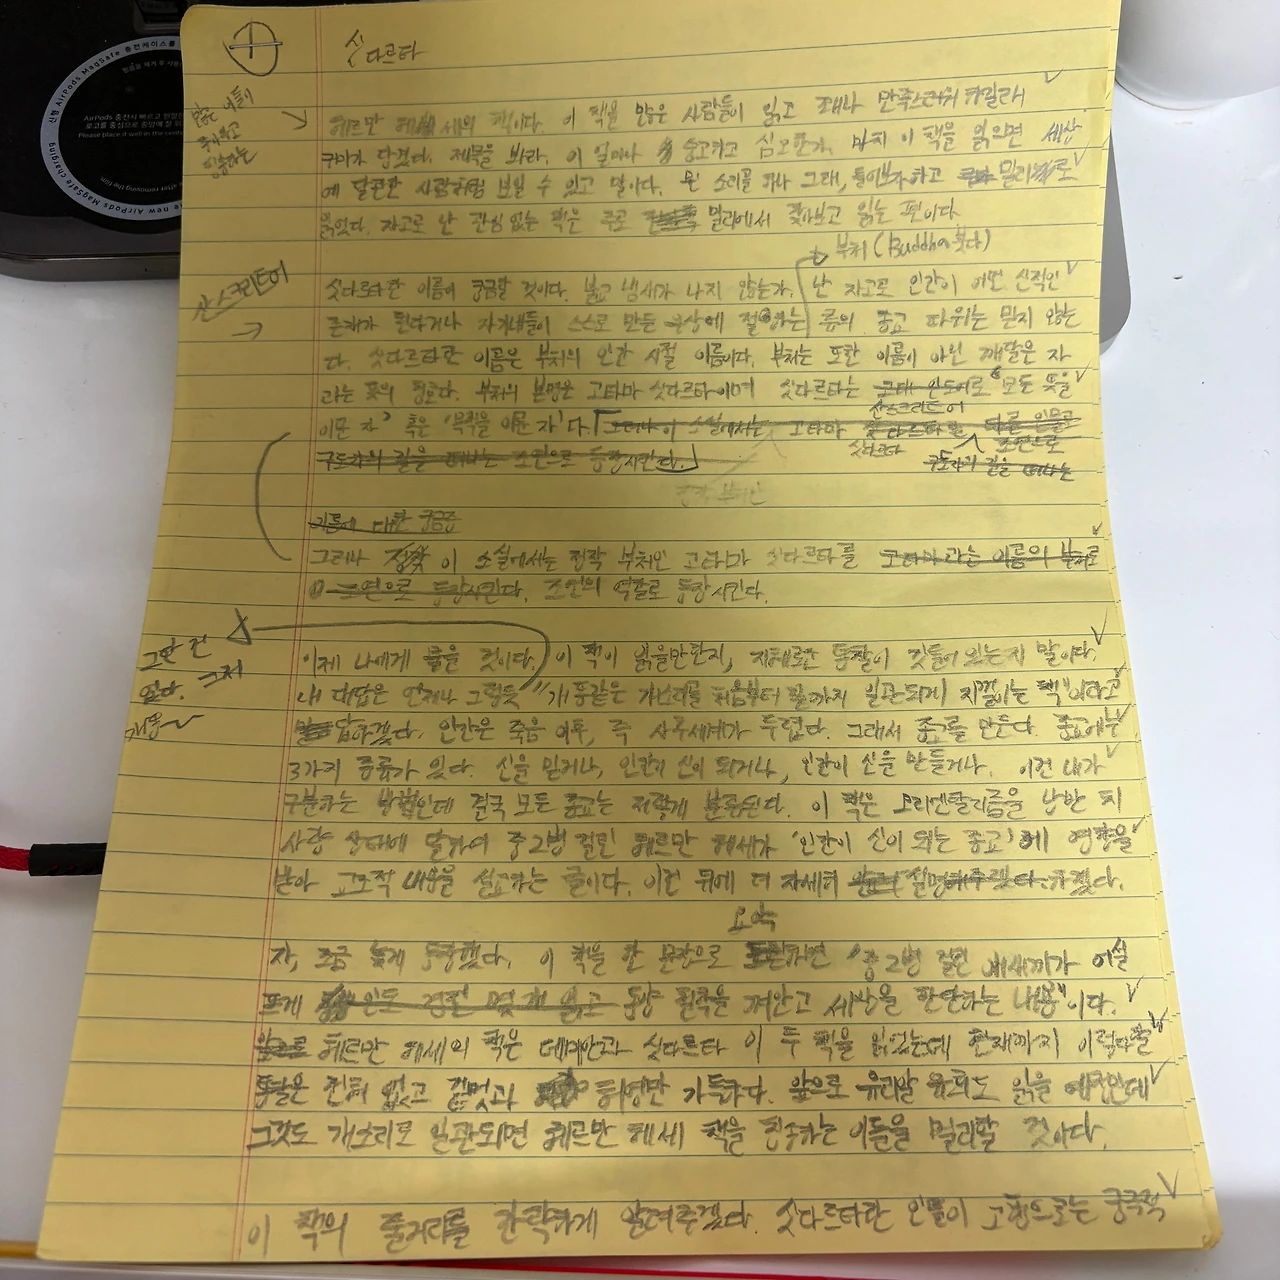 싯다르타
많은 이들이
헤르만 헤세의 책이다. 이 책을 많은 사람들이 읽고
구마가 담겼다. 제목을 봐라. 이 얼마나 숭고하고 심오한가. 마치 이 책을 읽으면 세상
에 달관한 사람처럼 보일 수 있고 말이다. 뭔 소리를 하나 그래, 들어보자하고 밀리로
읽었다. 자고로 난 관심 없는 책은 주로 밀리에서 찾아보고 읽는 편이다
부처 (Buddha 붓다)
산스크리트어
싯다르타란 이름이 궁금할 것이다. 불교 냄새가 나지 않는가. 난 자고로 인간이 어떤 신적인
존재가 된다거나 자기네들이 스스로 만든 부상에 절하는 류의 종교 따위는 믿지 않는
다. 싯다르타란 이름은 부처의 인간 시절 이름이다. 부처는 또한 이름이 아닌 깨달은 자
라는 뜻의 칭호다. 부처의 본명은 고타마 싯다르타이며 싯다르타는 고대 인도어로 '모든 뜻을
산스크리트어
이룬 자' 혹은 '목적을 이룬 자'다. 그러나 이 소설에서는 고타마 싯다르타를 다른 인물로
싯다르타 조언으로
구도자의 길을 떠나는 조연으로 등장시킨다.
구도자의 길을 떠나는
정작 부처인
이름에 대한 궁금증
그러나 정작 이 소설에서는 정작 부처인 고타마가 싯다르타를 고타마라는 이름의 부처로
조연으로 등장시킨다. 조언의 역할로 등장시킨다.
그런 건
없다. 그저
개똥~
이제 나에게 물을 것이다. 이 책이 읽을만한지, 지혜로운 통찰이 깃들어 있는지 말이다.
내 대답은 언제나 그렇듯 "개똥같은 개소리를 처음부터 끝까지 일관되게 지껄이는 책"이라고
답하겠다. 인간은 죽음 이후, 즉 사후세계가 두렵다. 그래서 종교를 만든다. 종교에는
3가지 종류가 있다. 신을 믿거나, 인간이 신이 되거나, 인간이 신을 만들거나. 이건 내가
구분하는 방법인데 결국 모든 종교는 저렇게 분류된다. 이 책은 오리엔탈리즘을 난반 찌
사랑 상태에 달하여 중2병 걸린 헤르만 헤세가 '인간이 신이 되는 종교'에 영향을
받아 교조적 내용을 설교하는 글이다. 이건 뒤에 더 자세히 설명하겠다.
요약
자, 조금 늦게 등장했다. 이 책을 한 문장으로 하면 "중2병 걸린 애새끼가 어설
프게 인도 경전 몇 개 읽고 동양 철학을 껴안고 세상을 한탄하는 내용"이다.
헤르만 헤세의 책은 데미안과 싯다르타 이 두 책을 읽었는데 현재까지 이렇다할
통찰은 전혀 없고 겉멋과 허영만 가득하다. 앞으로 유리알 유희도 읽을 예정인데
그것도 개소리로 일관되면 헤르만 헤세 책을 칭송하는 이들을 멀리할 것이다.
이 책의 줄거리를 간략하게 알려주겠다. 싯다르타란 인물이 고행으로는 궁극적